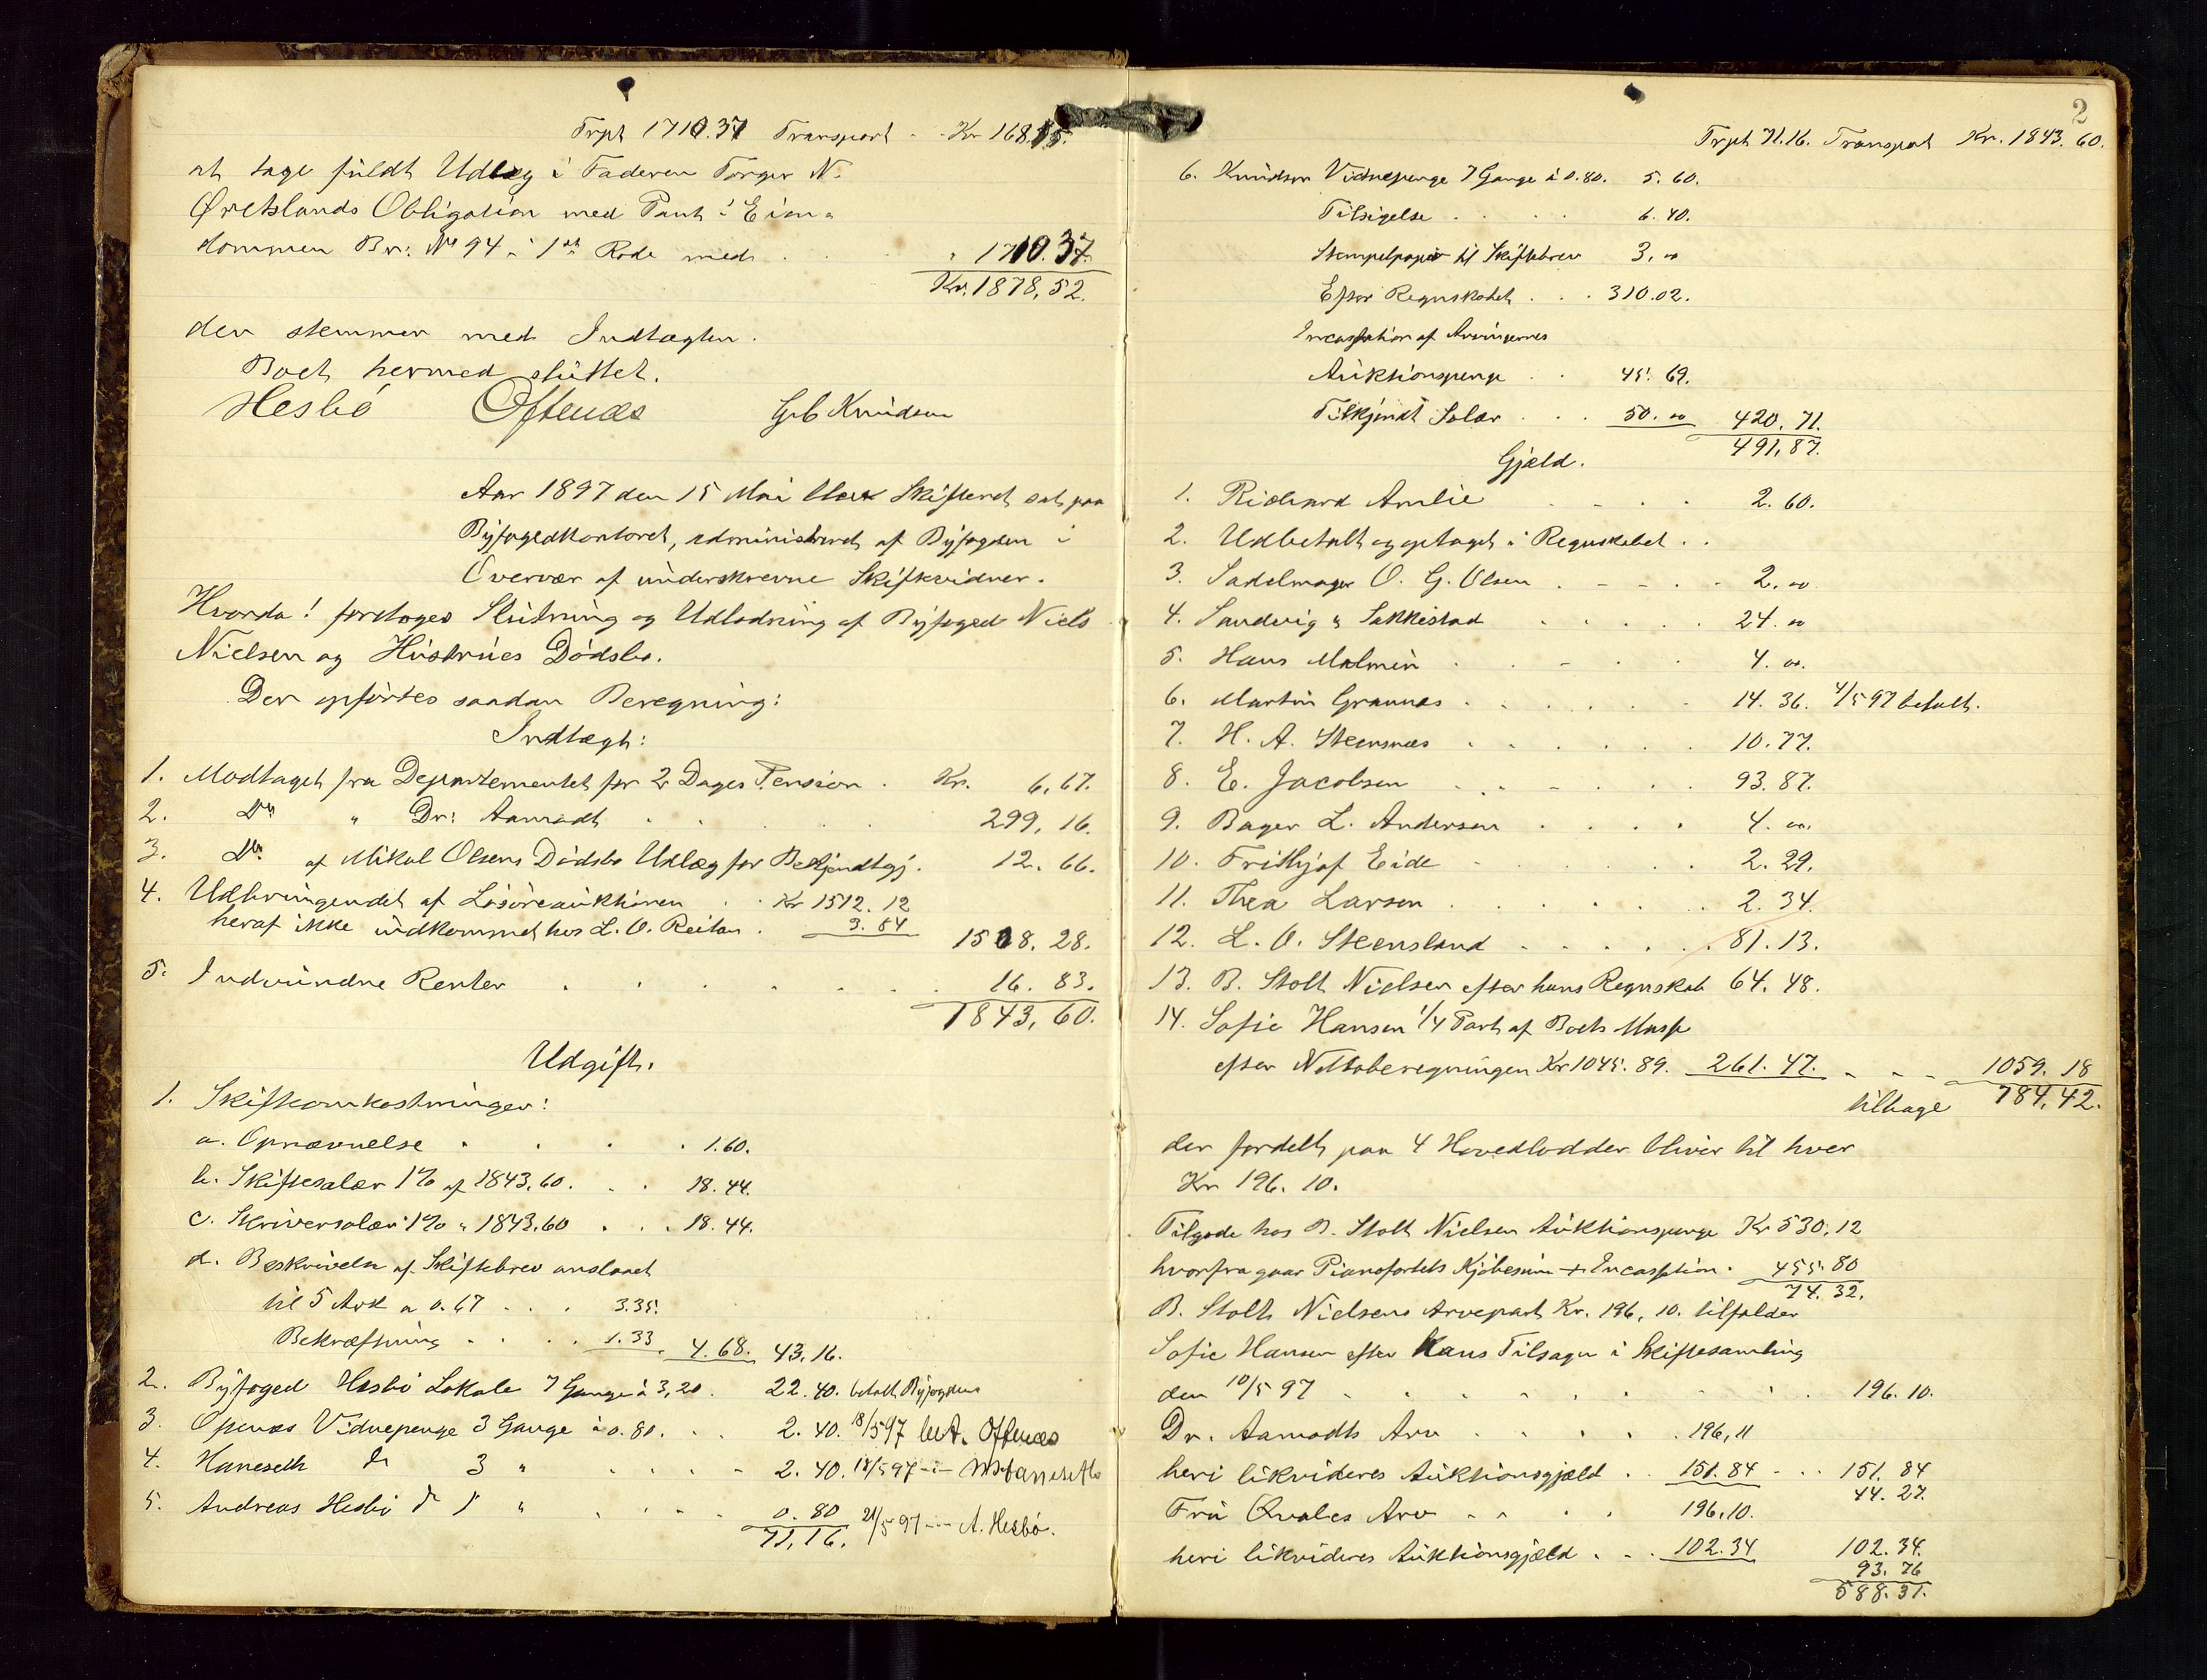 Trpt 1710.37 Transport - Kr 168.15.
at tage fuldt Udlæg i Faderen Torger N.
Øretslands Obligation med Pant i Eien=
dommen Br: No 94 i 1ste Rode med . . " 1710.37.
Kr. 1878,52.
der stemmer med Indtægten.
Boet hermed sluttet.
Hesbö Oftenæs Geb Knudsen
Aar 1897 den 15 Mai blev Skifteret sat paa
Byfogedkontoret, administreret af Byfogden i
Overvær af underskrevne Skiftevidner.
Hvorda! foretoges Slutning og Udlodning af Byfoged Niels
Nielsen og Hustrues Dödsbo.
Der opførtes saadan Beregning:
Indtægt:
1. Modtaget fra Departementet for 2 Dages Pension . Kr. 6,67.
2. Do " Dr: Aamodt . . . . 299,16.
3. Do. af Mikal Olsens Dödsbo Udlæg for Bekjendtgj. 12.66.
4. Udbringendet af Lösöreauktionen . . Kr 1512.12
heraf ikke indkommet hos L. O. Reitan . 3.84
1508.28.
5. Indvundne Renter . . . . . . 16.83.
1843,60.
Udgift.
1. Skifteomkostninger:
a. Opnævnelse . . . . 1.60.
b. Skiftesalær 1% af 1843,60. . . 18.44.
c. Skriversalær 1% " 1843.60 . . . 18.44.
d. Beskrivelse af Skiftebrev anslaaet
til 5 Ark a 0.67 . . . 3.35.
Bekræftning . . . . 1.33. 4.68. 43,16.
2. Byfoged Hesbö Lokale 7 Gange à 3,20. 22.40. betalt Byfogden
3. Openæs Vidnepenge 3 Gange à 0.80. . . 2.40. 18/5 97 bet. Oftenæs
4. Haneseth Do 3 " . . . . 2.40. 18/5 97 -"-
5. Andreas Hesbö Do 1 " . . . . 0.80 21/5 97 --- A. Hesbö.
71,16.
2
Trpt 71.16. Transport Kr. 1843.60.
6. Knudsen Vidnepenge 7 Gange à 0.80. 5.60.
Tilsigelse . . . . 6.40.
Stempelpapir til Skiftebrev 3,00
Efter Regnskabet . . . 310.02.
Incassation af Arvingernes
Auktionspenge . . 45.69.
Tilkjendt Salær . . . 50.00 420.71.
491,87.
Gjæld.
1. Richard Amlie . . . . 2.60.
2. Udbetalt og optaget i Regnskabet . .
3. Sadelmager O. G. Olsen . - - . - 2.00.
4. Sandvig & Sakkestad . . . . . 24.00
5. Hans Malmin . . - . . 4.00.
6. Martin Grannæs . . . . . . 14.36. 4/5 97 betalt.
7. H. A. Steensnæs . . . . . . 10.77.
8. E. Jacobsen . . . - . . . 93.87.
9. Bager L. Andersen . . . . 4.00.
10. Frithjof Eide - . . . . . 2.29.
11. Thea Larsen . . . . . . 2.34.
12. L. O. Steensland . . . . . . 81.13.
13. B. Stolt Nielsen efter hans Regnskab 64.48.
14. Sofie Hansen 1/4 Part af Boets Masse
efter Nettoberegningen Kr 1045.89. 261.47. - - - 1059.18
tilbage 784,42.
der fordelt paa 4 Hovedlodder bliver til hver
Kr 196.10.
Tilgode hos B. Stolt Nielsen Auktionspenge Kr 530,12
hvorfra gaar Pianofortets Kjöbesum + Incassation. 455.80
74.32.
B. Stolt Nielsens Arvepart Kr. 196,10. tilfalder
Sofie Hansen efter hans Tilsagn i Skiftesamling
den 10/5 97 . . . . . . . 196.10.
Dr. Aamodts Arv . . . . . 196,11
heri likvideres Auktionsgjæld . . 151.84 - . . 151.84
44.27.
Fru Qvales Arv . . . . 196.10.
heri likvideres Auktionsgjæld . . . 102.34 102.34.
93.76
588.31.